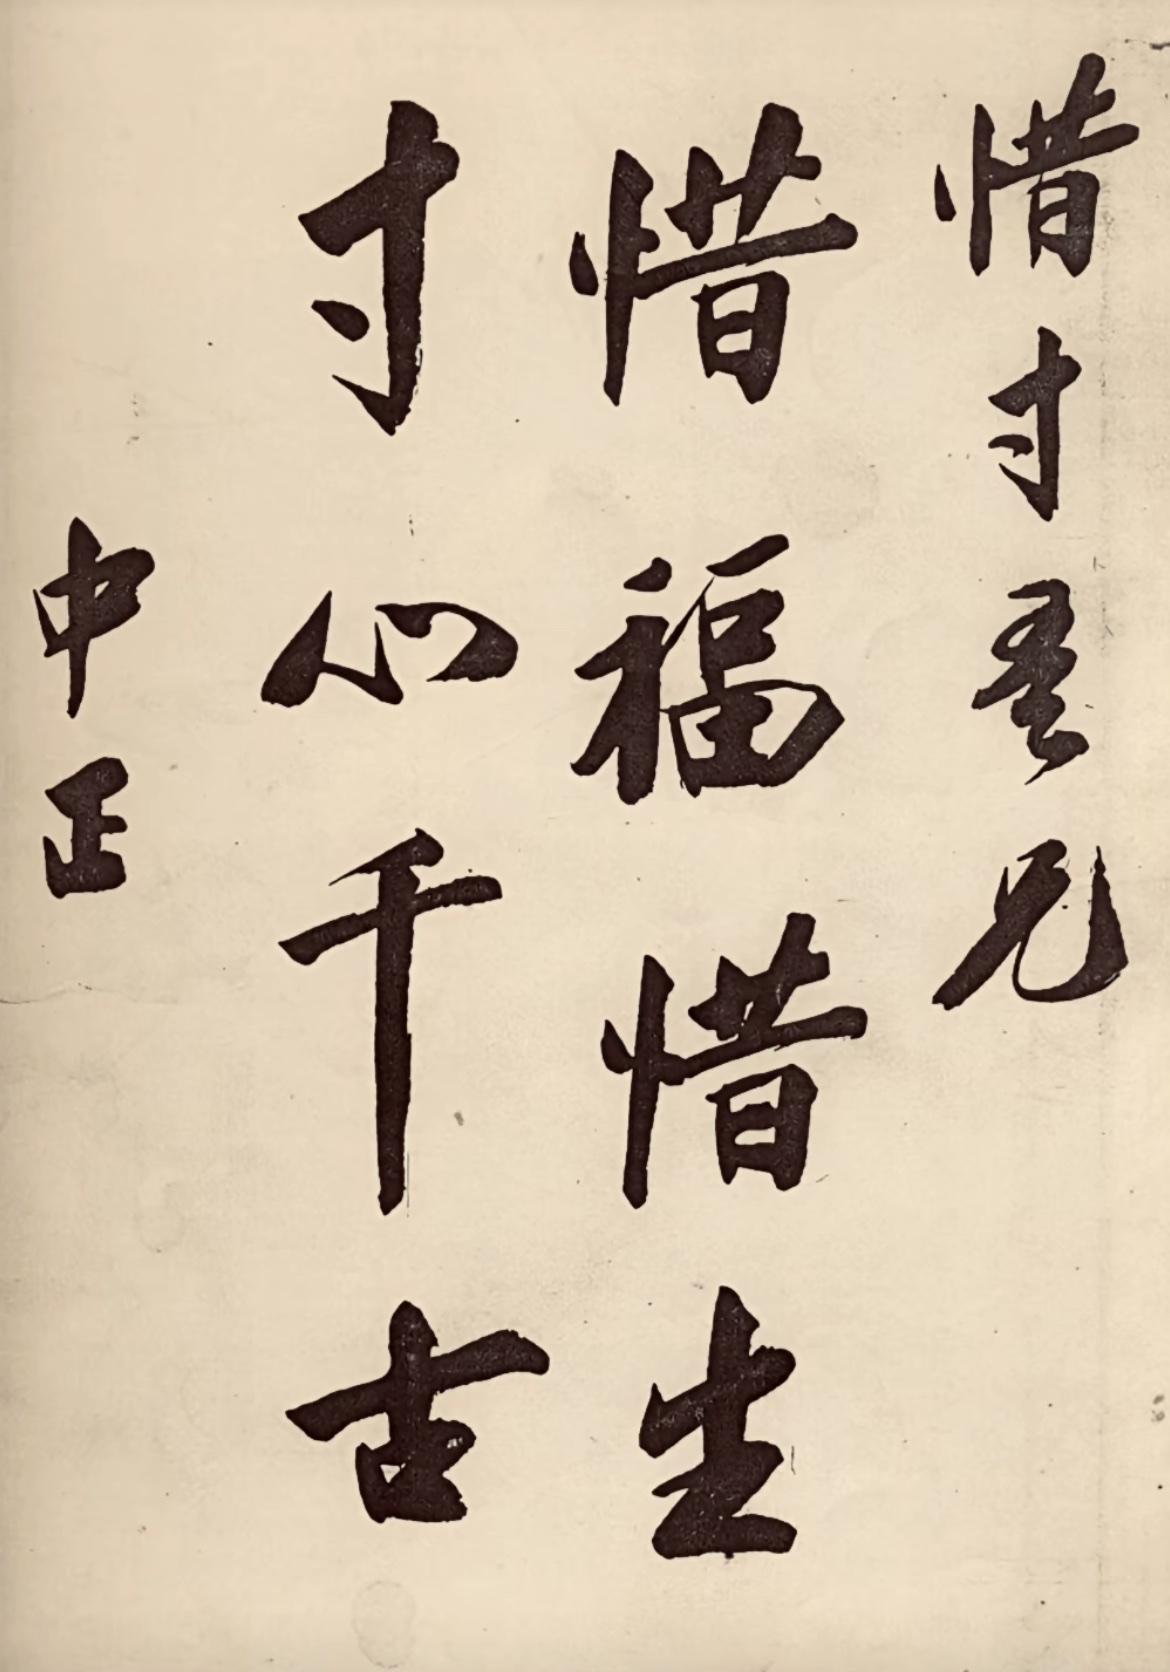 惜寸吾兄
惜福惜生
寸心千古
中正